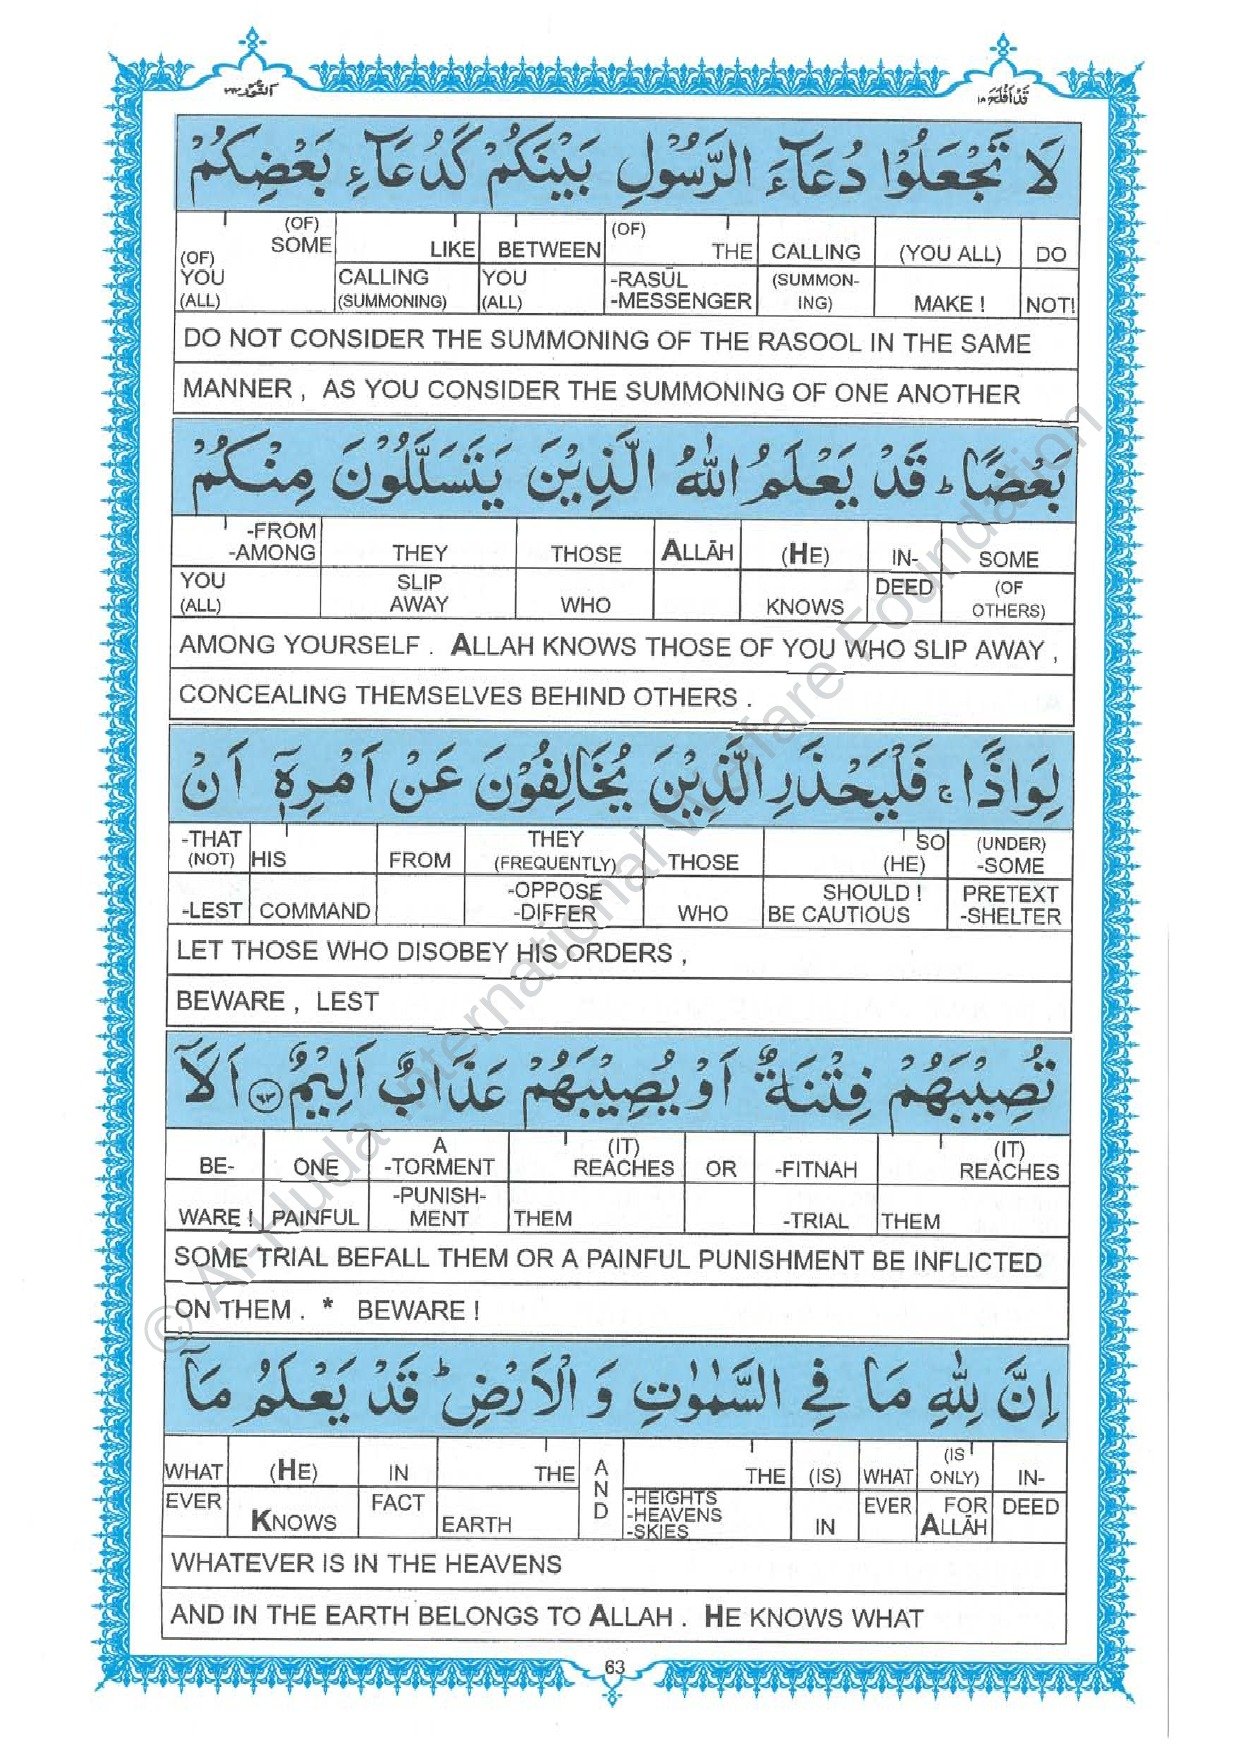 النور ٢٤
قد افلح ١٨
لَا تَجْعَلُوْا دُعَآءَ الرَّسُوْلِ بَيْنَكُمْ كَدُعَآءِ بَعْضِكُمْ
(OF) YOU (ALL) | (OF) SOME | LIKE CALLING (SUMMONING) | BETWEEN YOU (ALL) | (OF) THE -RASŪL -MESSENGER | CALLING (SUMMON-ING) | (YOU ALL) MAKE ! | DO NOT!
DO NOT CONSIDER THE SUMMONING OF THE RASOOL IN THE SAME
MANNER , AS YOU CONSIDER THE SUMMONING OF ONE ANOTHER
بَعْضًا ؕ قَدْ يَعْلَمُ اللّٰهُ الَّذِيْنَ يَتَسَلَّلُوْنَ مِنْكُمْ
-FROM -AMONG YOU (ALL) | THEY SLIP AWAY | THOSE WHO | ALLĀH | (HE) KNOWS | IN-DEED | SOME (OF OTHERS)
AMONG YOURSELF . ALLAH KNOWS THOSE OF YOU WHO SLIP AWAY ,
CONCEALING THEMSELVES BEHIND OTHERS .
لِوَاذًا ۚ فَلْيَحْذَرِ الَّذِيْنَ يُخَالِفُوْنَ عَنْ اَمْرِهٖۤ اَنْ
-THAT (NOT) -LEST | HIS COMMAND | FROM | THEY (FREQUENTLY) -OPPOSE -DIFFER | THOSE WHO | SO (HE) SHOULD ! BE CAUTIOUS | (UNDER) -SOME PRETEXT -SHELTER
LET THOSE WHO DISOBEY HIS ORDERS ,
BEWARE , LEST
تُصِيْبَهُمْ فِتْنَةٌ اَوْ يُصِيْبَهُمْ عَذَابٌ اَلِيْمٌ ٦٣ اَلَاۤ
BE-WARE ! | ONE PAINFUL | A -TORMENT -PUNISH-MENT | (IT) REACHES THEM | OR | -FITNAH -TRIAL | (IT) REACHES THEM
SOME TRIAL BEFALL THEM OR A PAINFUL PUNISHMENT BE INFLICTED
ON THEM . * BEWARE !
اِنَّ لِلّٰهِ مَا فِي السَّمٰوٰتِ وَ الْاَرْضِ ؕ قَدْ يَعْلَمُ مَاۤ
WHAT EVER | (HE) KNOWS | IN FACT | THE EARTH | AND | THE -HEIGHTS -HEAVENS -SKIES | (IS) IN | WHAT EVER | (IS ONLY) FOR ALLĀH | IN-DEED
WHATEVER IS IN THE HEAVENS
AND IN THE EARTH BELONGS TO ALLAH . HE KNOWS WHAT
63
© Al-Huda International Welfare Foundation